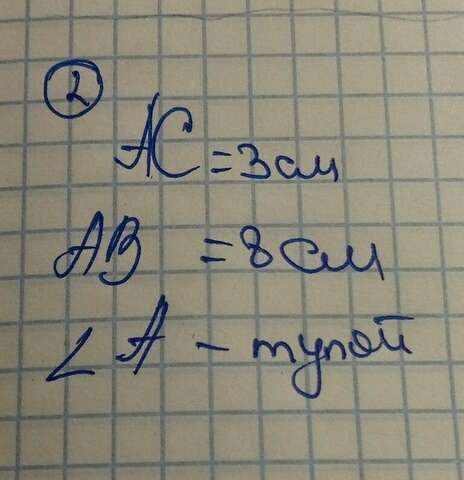 2
AC = 3 см
AB = 8 см
∠A - тупой